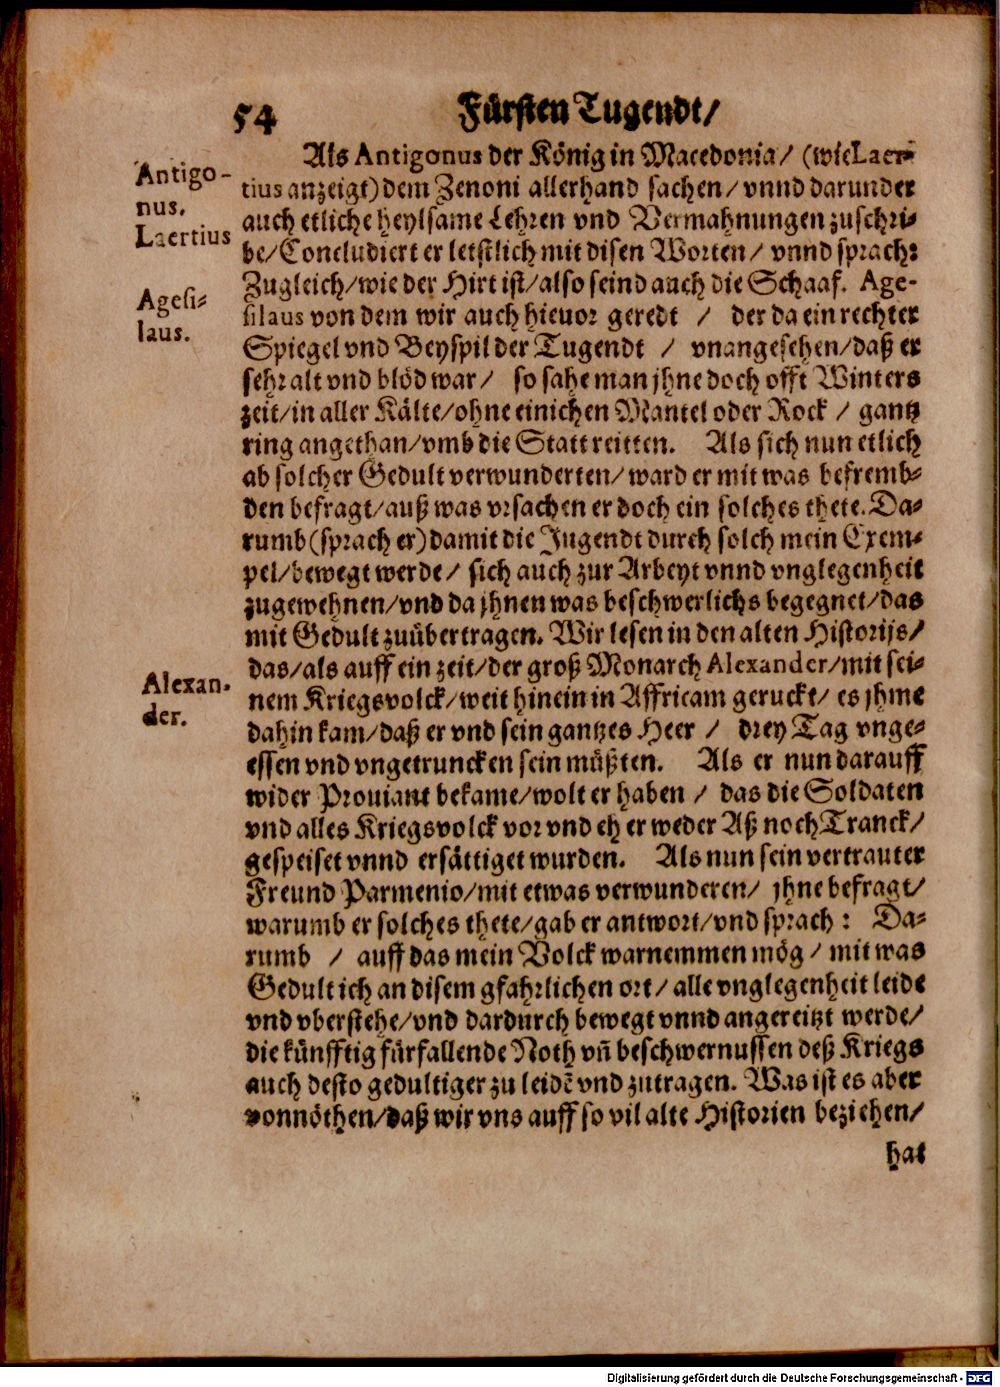 54 Fürsten Tugendt/
Als Antigonus der König in Macedonia/ (wie Laer-
tius anzeigt) dem Zenoni allerhand sachen/ vnnd darunder
auch etliche heylsame Lehren vnd Vermahnungen zuschri-
be/ Concludiert er letstlich mit disen Worten/ vnnd sprach:
Zugleich/ wie der Hirt ist/ also seind auch die Schaaf. Age-
silaus von dem wir auch hieuor geredt / der da ein rechter
Spiegel vnd Beyspil der Tugendt / vnangesehen/ daß er
sehr alt vnd blöd war/ so sahe man jhne doch offt Winters
zeit/ in aller Kälte/ ohne einichen Mantel oder Rock / gantz
ring angethan/ vmb die Statt reitten. Als sich nun etlich
ab solcher Gedult verwunderten/ ward er mit was befremb-
den befragt/ auß was vrsachen er doch ein solches thete. Da-
rumb (sprach er) damit die Jugendt durch solch mein Exem-
pel/ bewegt werde/ sich auch zur Arbeyt vnnd vnglegenheit
zugewehnen/ vnd da jhnen was beschwerlichs begegnet/ das
mit Gedult zuübertragen. Wir lesen in den alten Historijs/
das/ als auff ein zeit/ der groß Monarch Alexander/ mit sei-
nem Kriegsvolck/ weit hinein in Affricam geruckt/ es jhme
dahin kam/ daß er vnd sein gantzes Heer / drey Tag vnge-
essen vnd vngetruncken sein müßten. Als er nun darauff
wider Prouiant bekame/ wolt er haben / das die Soldaten
vnd alles Kriegsvolck vor vnd eh er weder Aß noch Tranck/
gespeiset vnnd ersättiget wurden. Als nun sein vertrauter
Freund Parmenio/ mit etwas verwunderen/ jhne befragt/
warumb er solches thete/ gab er antwort/ vnd sprach: Da-
rumb / auff das mein Volck warnemmen mög / mit was
Gedult ich an disem gfahrlichen ort/ alle vnglegenheit leide
vnd vberstehe/ vnd dardurch bewegt vnnd angereitzt werde/
die künfftig fürfallende Noth vñ beschwernussen deß Kriegs
auch desto gedultiger zu leidẽ vnd zutragen. Was ist es aber
vonnöthen/ daß wir vns auff so vil alte Historien beziehen/
hat
Antigo-
nus.
Laertius
Agesi-
laus.
Alexan-
der.
Digitalisierung gefördert durch die Deutsche Forschungsgemeinschaft - DFG